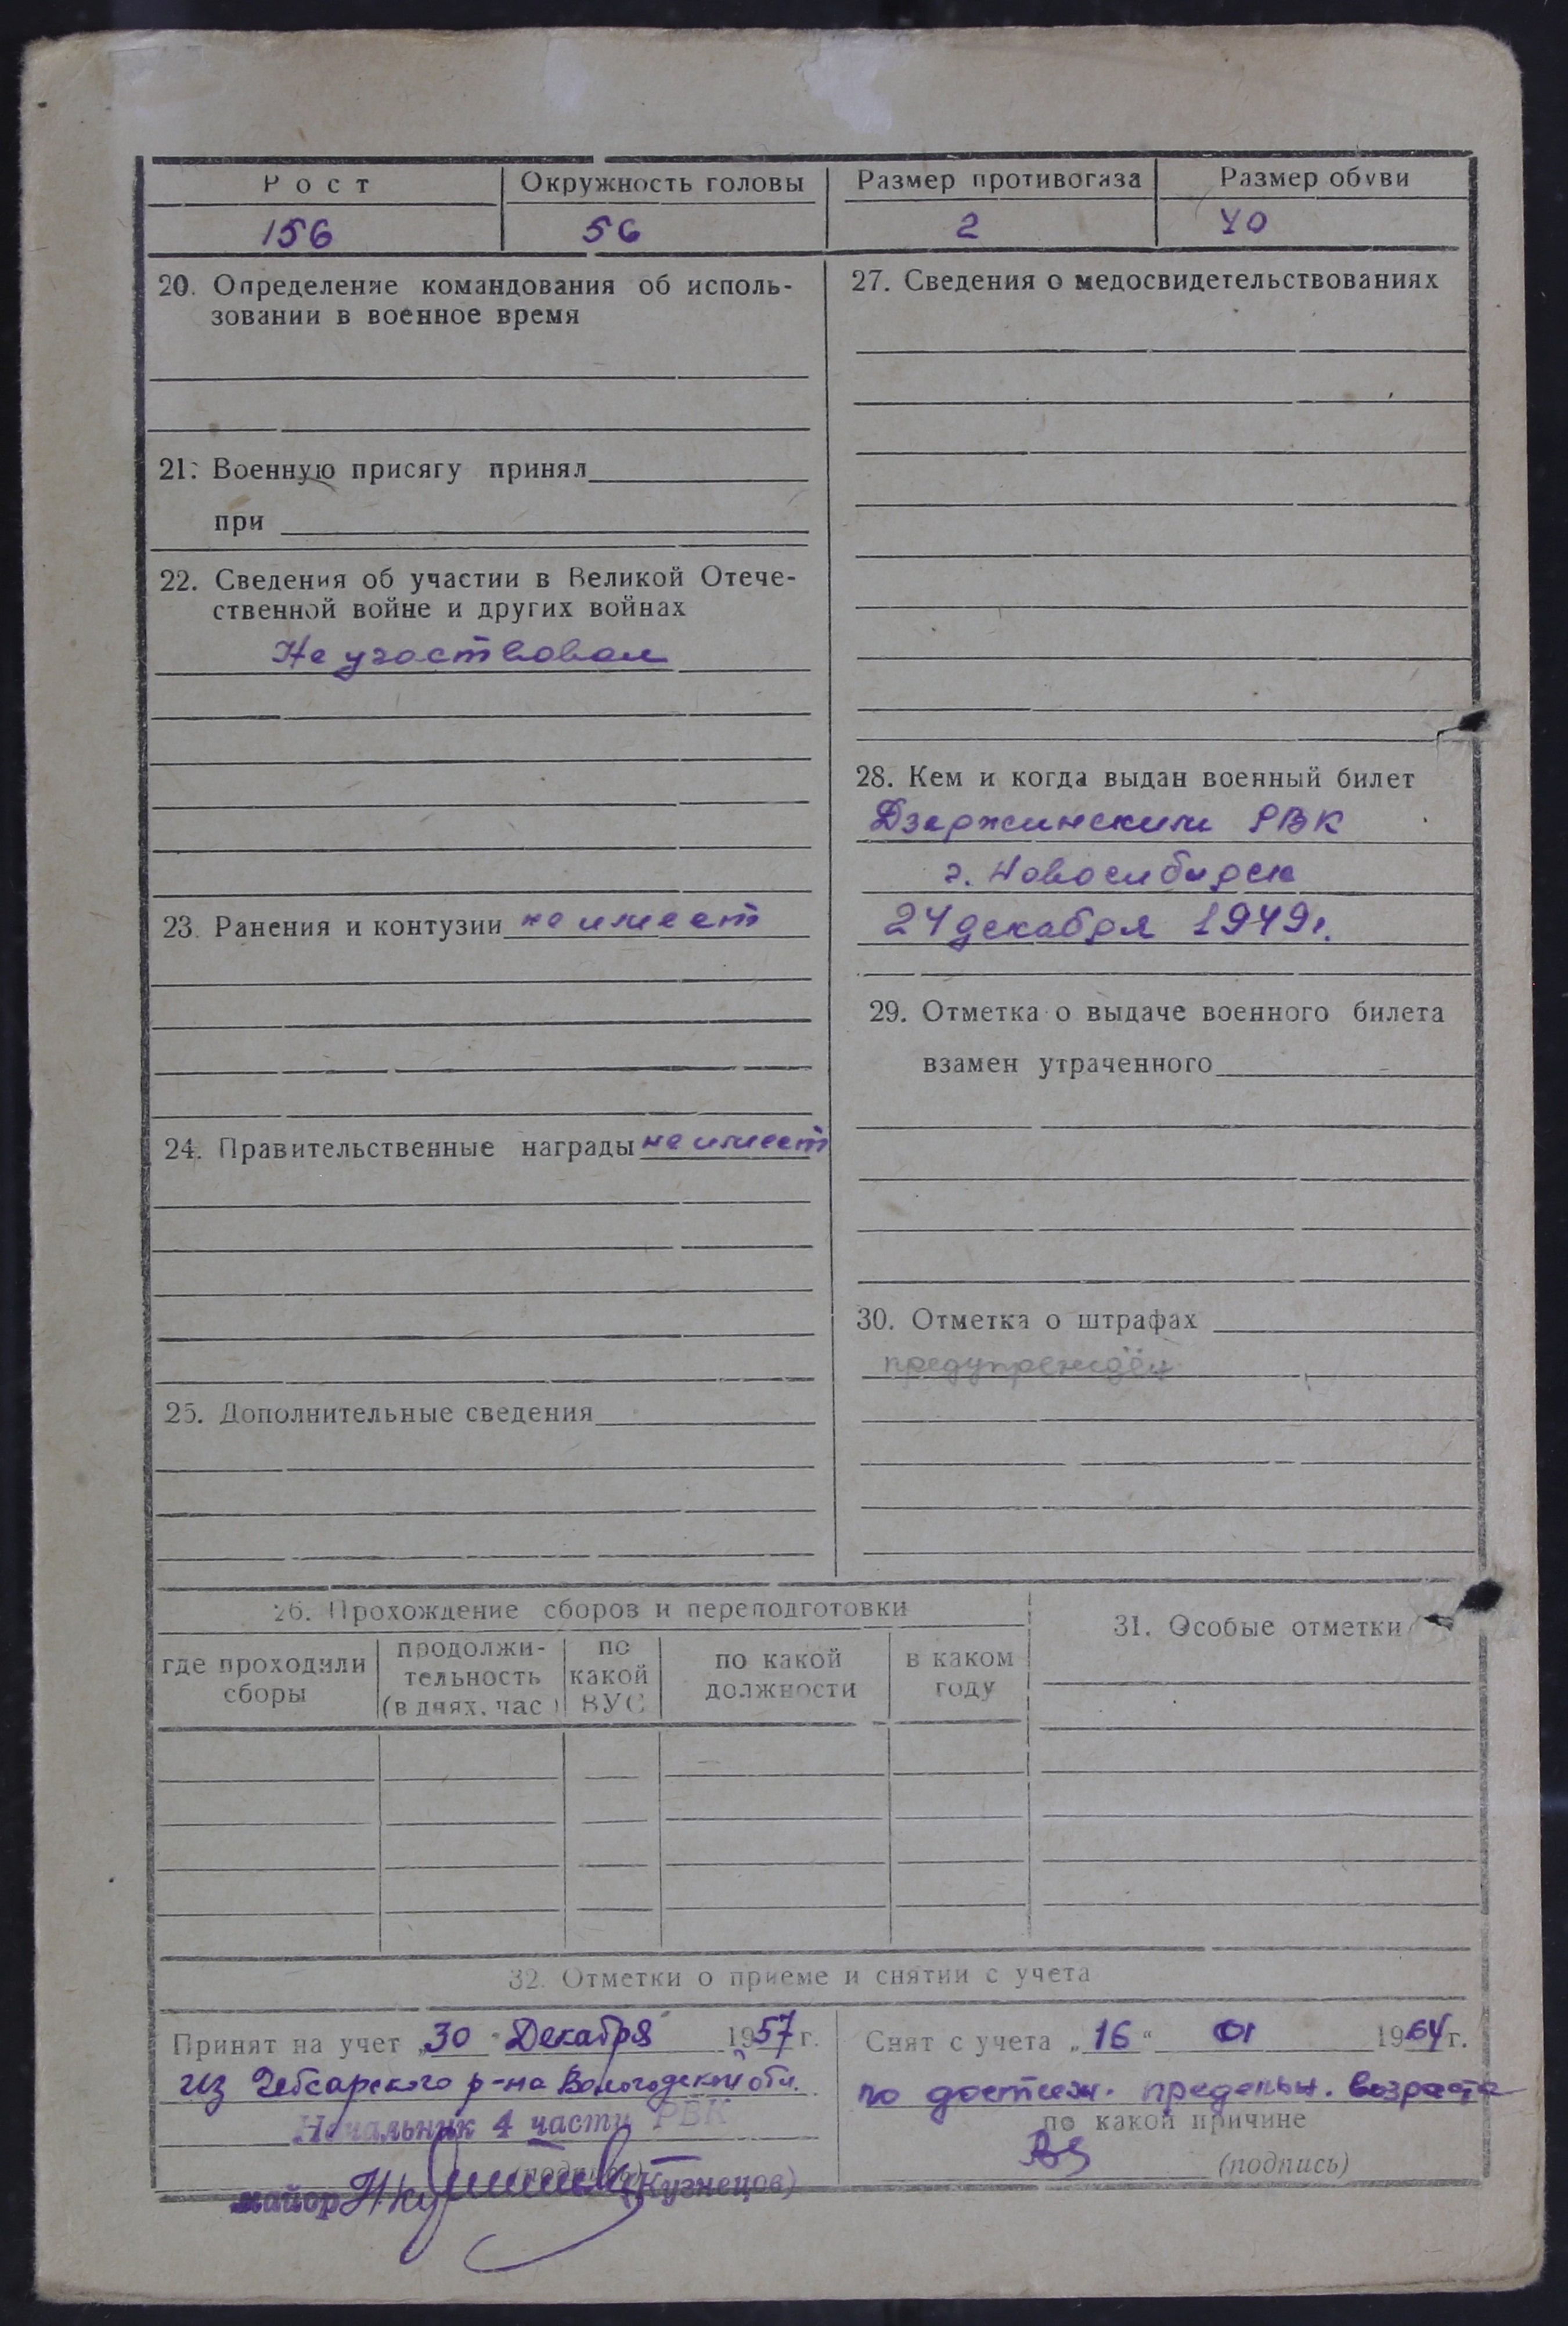 Рост Окружность головы Размер противогаза Размер обуви
156 56 2 40
20. Определение командования об исполь-
зовании в военное время
21. Военную присягу принял
при
22. Сведения об участии в Великой Отече-
ственной войне и других войнах
Не участвовал
23. Ранения и контузии не имеет
24. Правительственные награды не имеет
25. Дополнительные сведения
27. Сведения о медосвидетельствованиях
28. Кем и когда выдан военный билет
Дзержинским РВК
г. Новосибирск
24 декабря 1949г.
29. Отметка о выдаче военного билета
взамен утраченного
30. Отметка о штрафах
предупреждён
26. Прохождение сборов и переподготовки
где проходили
сборы
продолжи-
тельность
(в днях, час)
по
какой
ВУС
по какой
должности
в каком
году
31. Особые отметки
32. Отметки о приеме и снятии с учета
Принят на учет „30" Декабря 1957 г.
из Чебсарского р-на Вологодской обл.
Начальник 4 части РВК
(подпись)
майор (Кузнецов)
Снят с учета „16" 01 1964 г.
по достиж. предельн. возраста
по какой причине
(подпись)